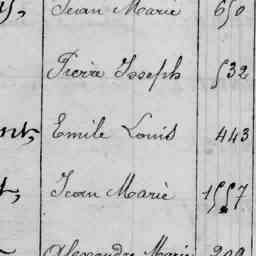 Jean Marie 650
Pierre Joseph 532
Emile Louis 443
Jean Marie 1557
Alexandre Marie 209